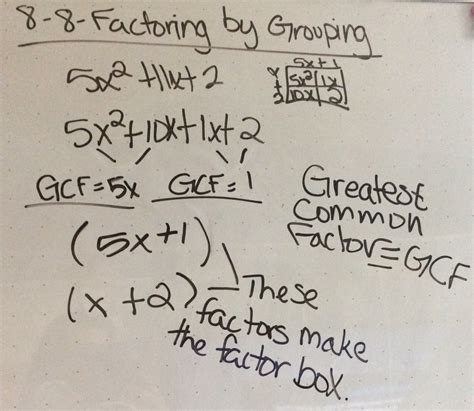 8-8-Factoring by Grouping
5x² +11x+ 2
5x+1
x 5x² 1x
+2 10x 2
5x²+10x+1x+2
GCF=5x GCF=1
Greatest
Common
Factor=GCF
(5x+1)
(x +2) These
factors make
the factor box.